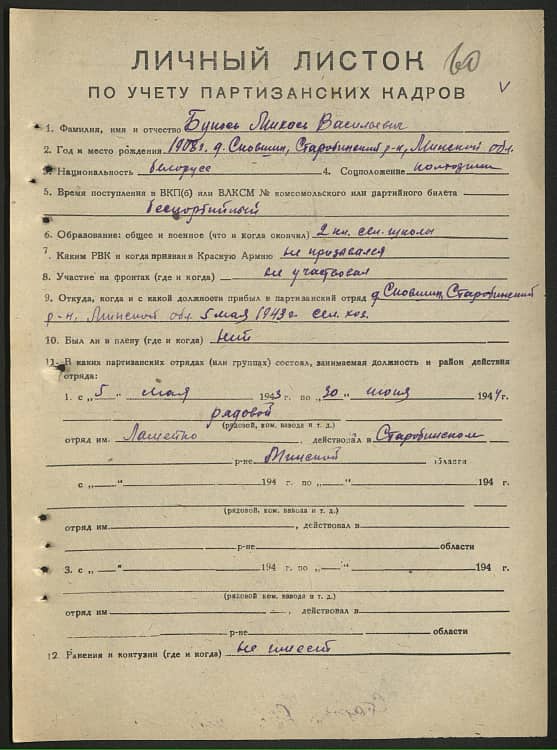 ЛИЧНЫЙ ЛИСТОК 60
ПО УЧЕТУ ПАРТИЗАНСКИХ КАДРОВ V
1. Фамилия, имя и отчество Михась Васильевич
2. Год и место рождения 1908 г. д. Сковшин, Старобинский р-н, Минской обл.
3. Национальность белорусс 4. Соцположение колхозник
5. Время поступления в ВКП(б) или ВЛКСМ № комсомольского или партийного билета
беспартийный
6. Образование: общее и военное (что и когда окончил) 2 кл. сел. школы
7. Каким РВК и когда призван в Красную Армию не призывался
8. Участие на фронтах (где и когда) не участвовал
9. Откуда, когда и с какой должности прибыл в партизанский отряд д. Сковшин, Старобинский
р-н, Минской обл. 5 мая 1943 г. сел. хоз.
10. Был ли в плену (где и когда) нет
11. В каких партизанских отрядах (или группах) состоял, занимаемая должность и район действия
отряда:
1. с „5" мая 1943 г. по „30" июня 1944 г.
рядовой
(рядовой, ком. взвода и т. д.)
отряд им. действовал в Старобинском
р-не Минской области
с „ " 194 г. по „ " 194 г.
(рядовой, ком. взвода и т. д.)
отряд им. , действовал в
р-не области
3. с „ " 194 г. по „ " 194 г.
(рядовой, ком. взвода и т. д.)
отряд им. , действовал в
р-не области
12. Ранения и контузии (где и когда) не имеет